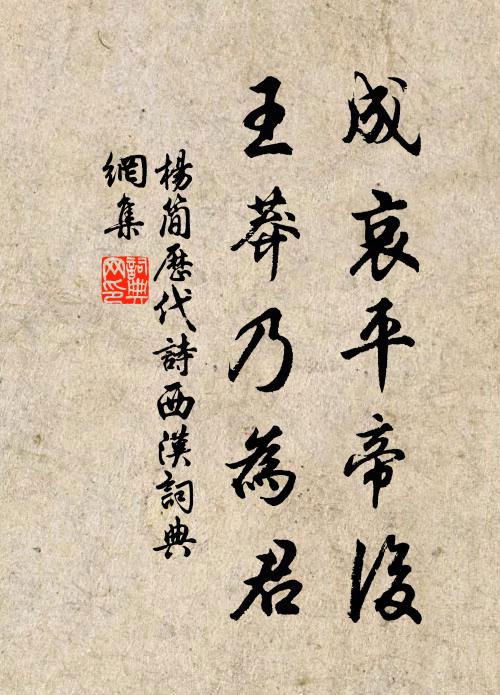 成哀平帝後
王莽乃為君
楊簡歷代詩西漢詞典
網集
詞典網印